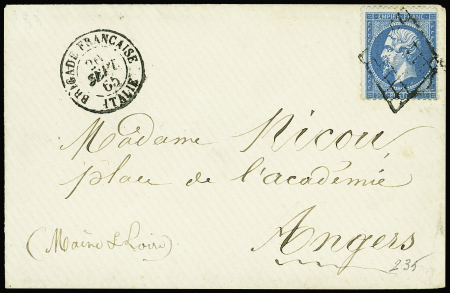 BRIGADE FRANÇAISE
20
SEPT.
65
ITALIE
EMPIRE FRANC
Madame Nicou
place de l'académie
Angers
(Maine & Loire)
235